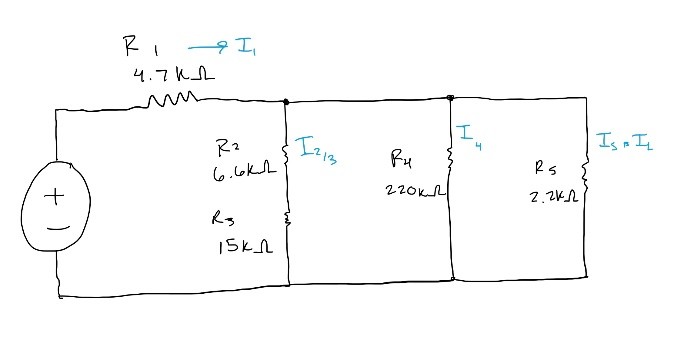 R1 → I1
4.7kΩ
+
−
R2
6.6kΩ
I2/3
R3
15kΩ
R4
220kΩ
I4
R5
2.2kΩ
I5 = IL